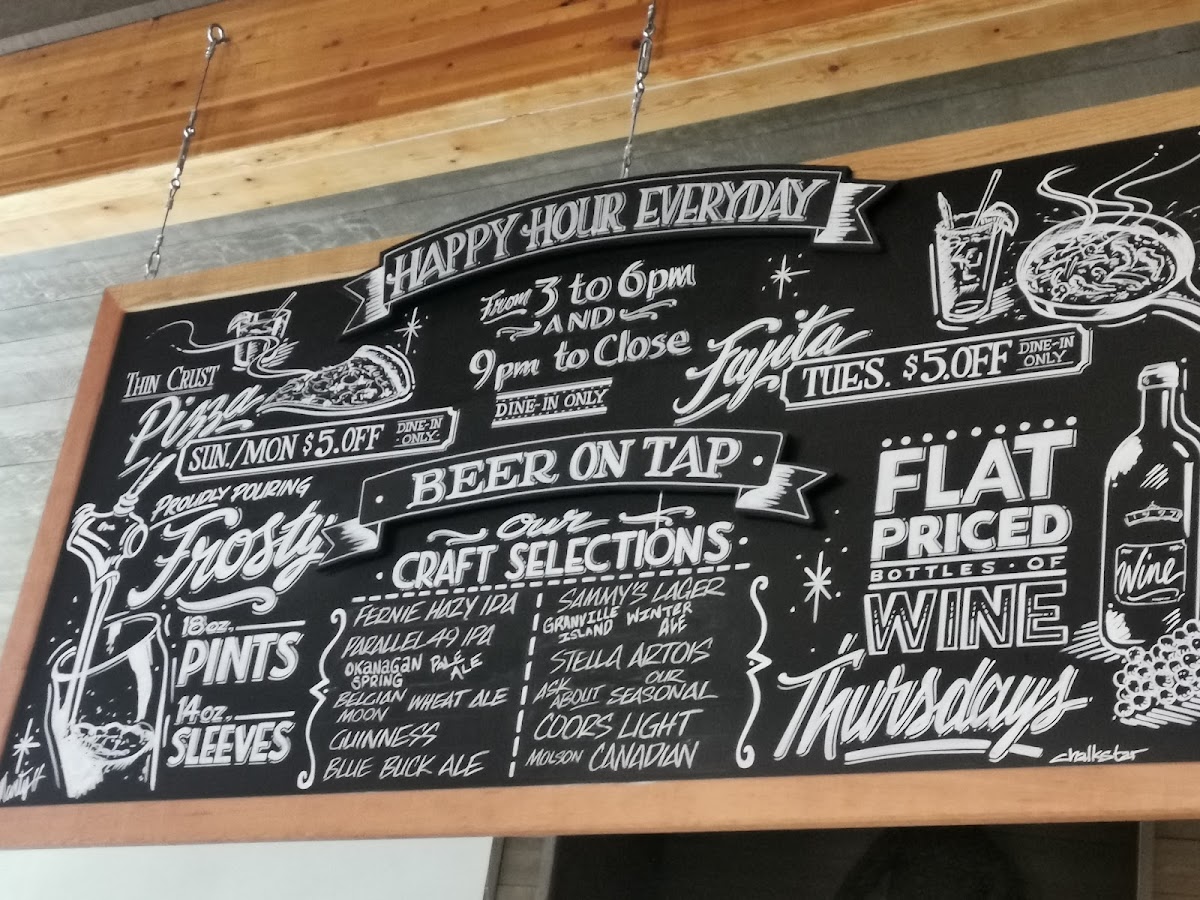 HAPPY HOUR EVERYDAY
From 3 to 6pm
AND
9pm to Close
DINE-IN ONLY
THIN CRUST
Pizza
SUN./MON $5.OFF DINE-IN ONLY
Fajita
TUES. $5.OFF DINE-IN ONLY
BEER ON TAP
PROUDLY POURING
Frosty
18oz.
PINTS
14oz.
SLEEVES
our
CRAFT SELECTIONS
FERNIE HAZY IPA
PARALLEL 49 IPA
OKANAGAN SPRING PALE ALE
BELGIAN MOON WHEAT ALE
GUINNESS
BLUE BUCK ALE
SAMMY'S LAGER
GRANVILLE ISLAND WINTER ALE
STELLA ARTOIS
ASK ABOUT OUR SEASONAL
COORS LIGHT
MOLSON CANADIAN
FLAT
PRICED
BOTTLES · OF
WINE
Thursdays
Wine
chalkstar